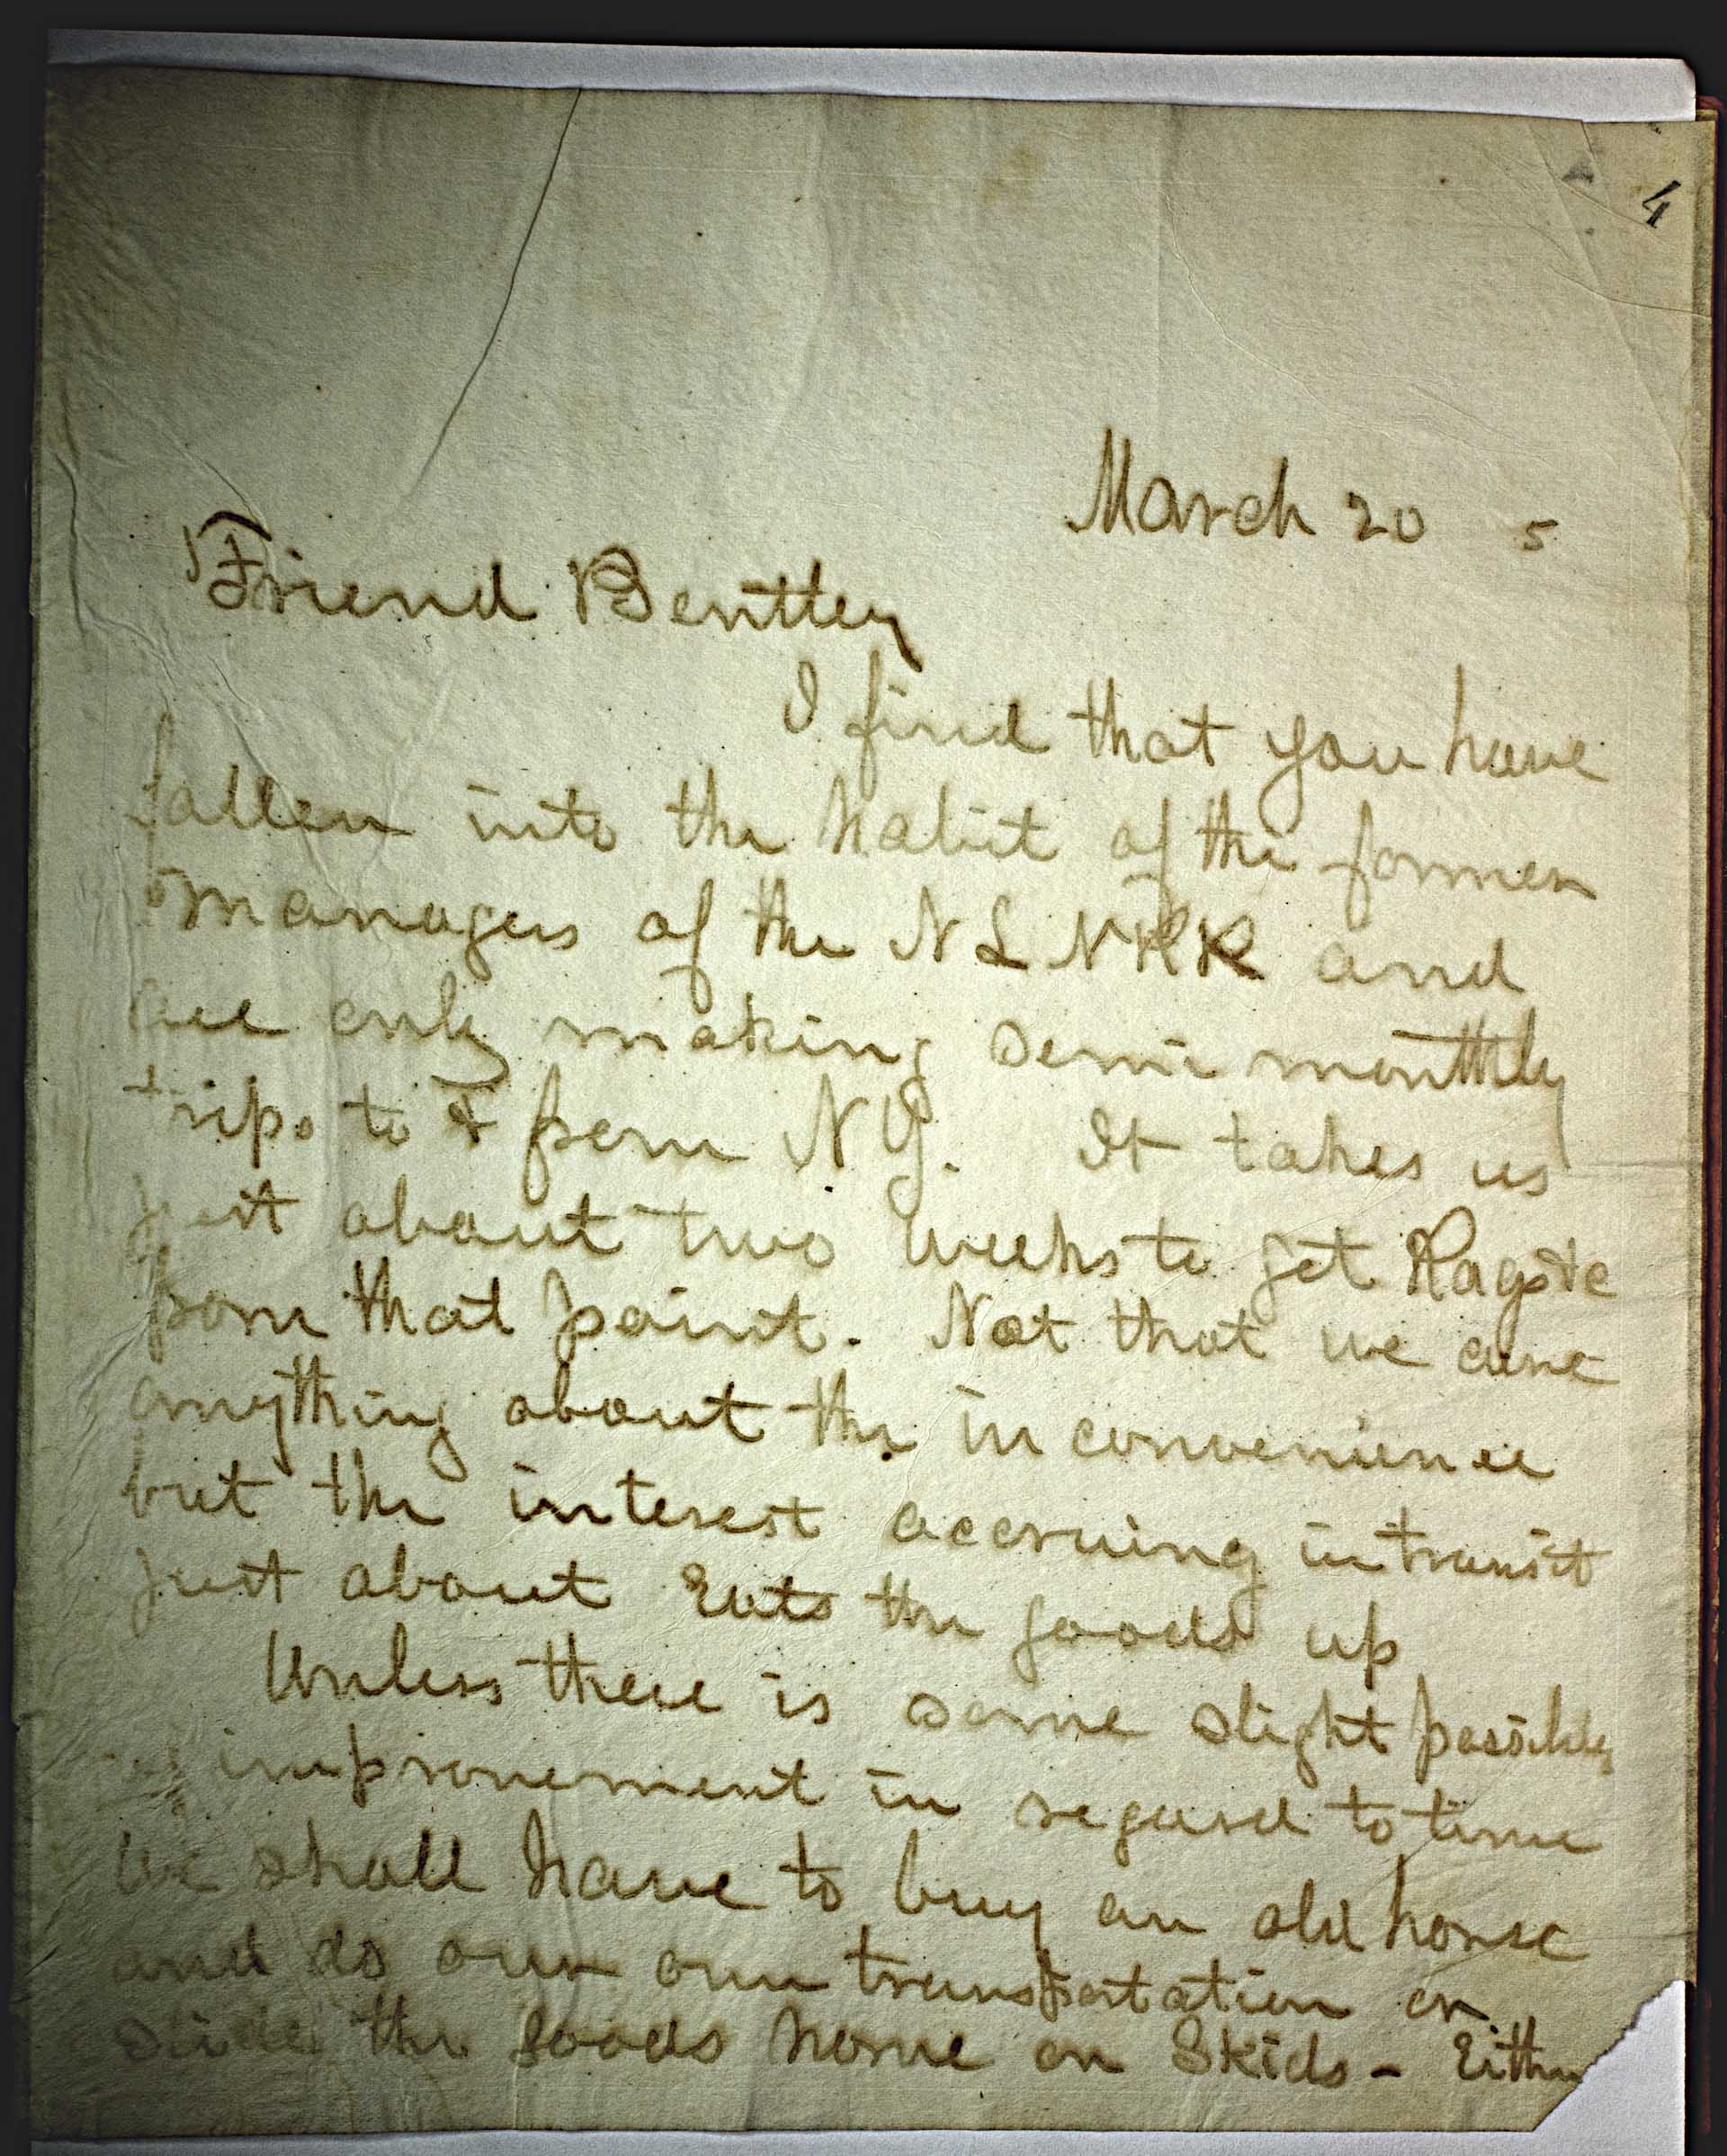 4
March 20 5
Friend Bentley
I find that you have
fallen into the habit of the former
managers of the N L N R R and
are only making semi monthly
trips to & from N Y. It takes us
just about two weeks to get Rags &c
from that point. Not that we care
anything about the in convenience
but the interest accruing in transit
just about Eats the goods up
Unless there is some slight possibility
of improvement in regard to time
we shall have to buy an old horse
and do our own transportation or
the goods home on Skids - Either